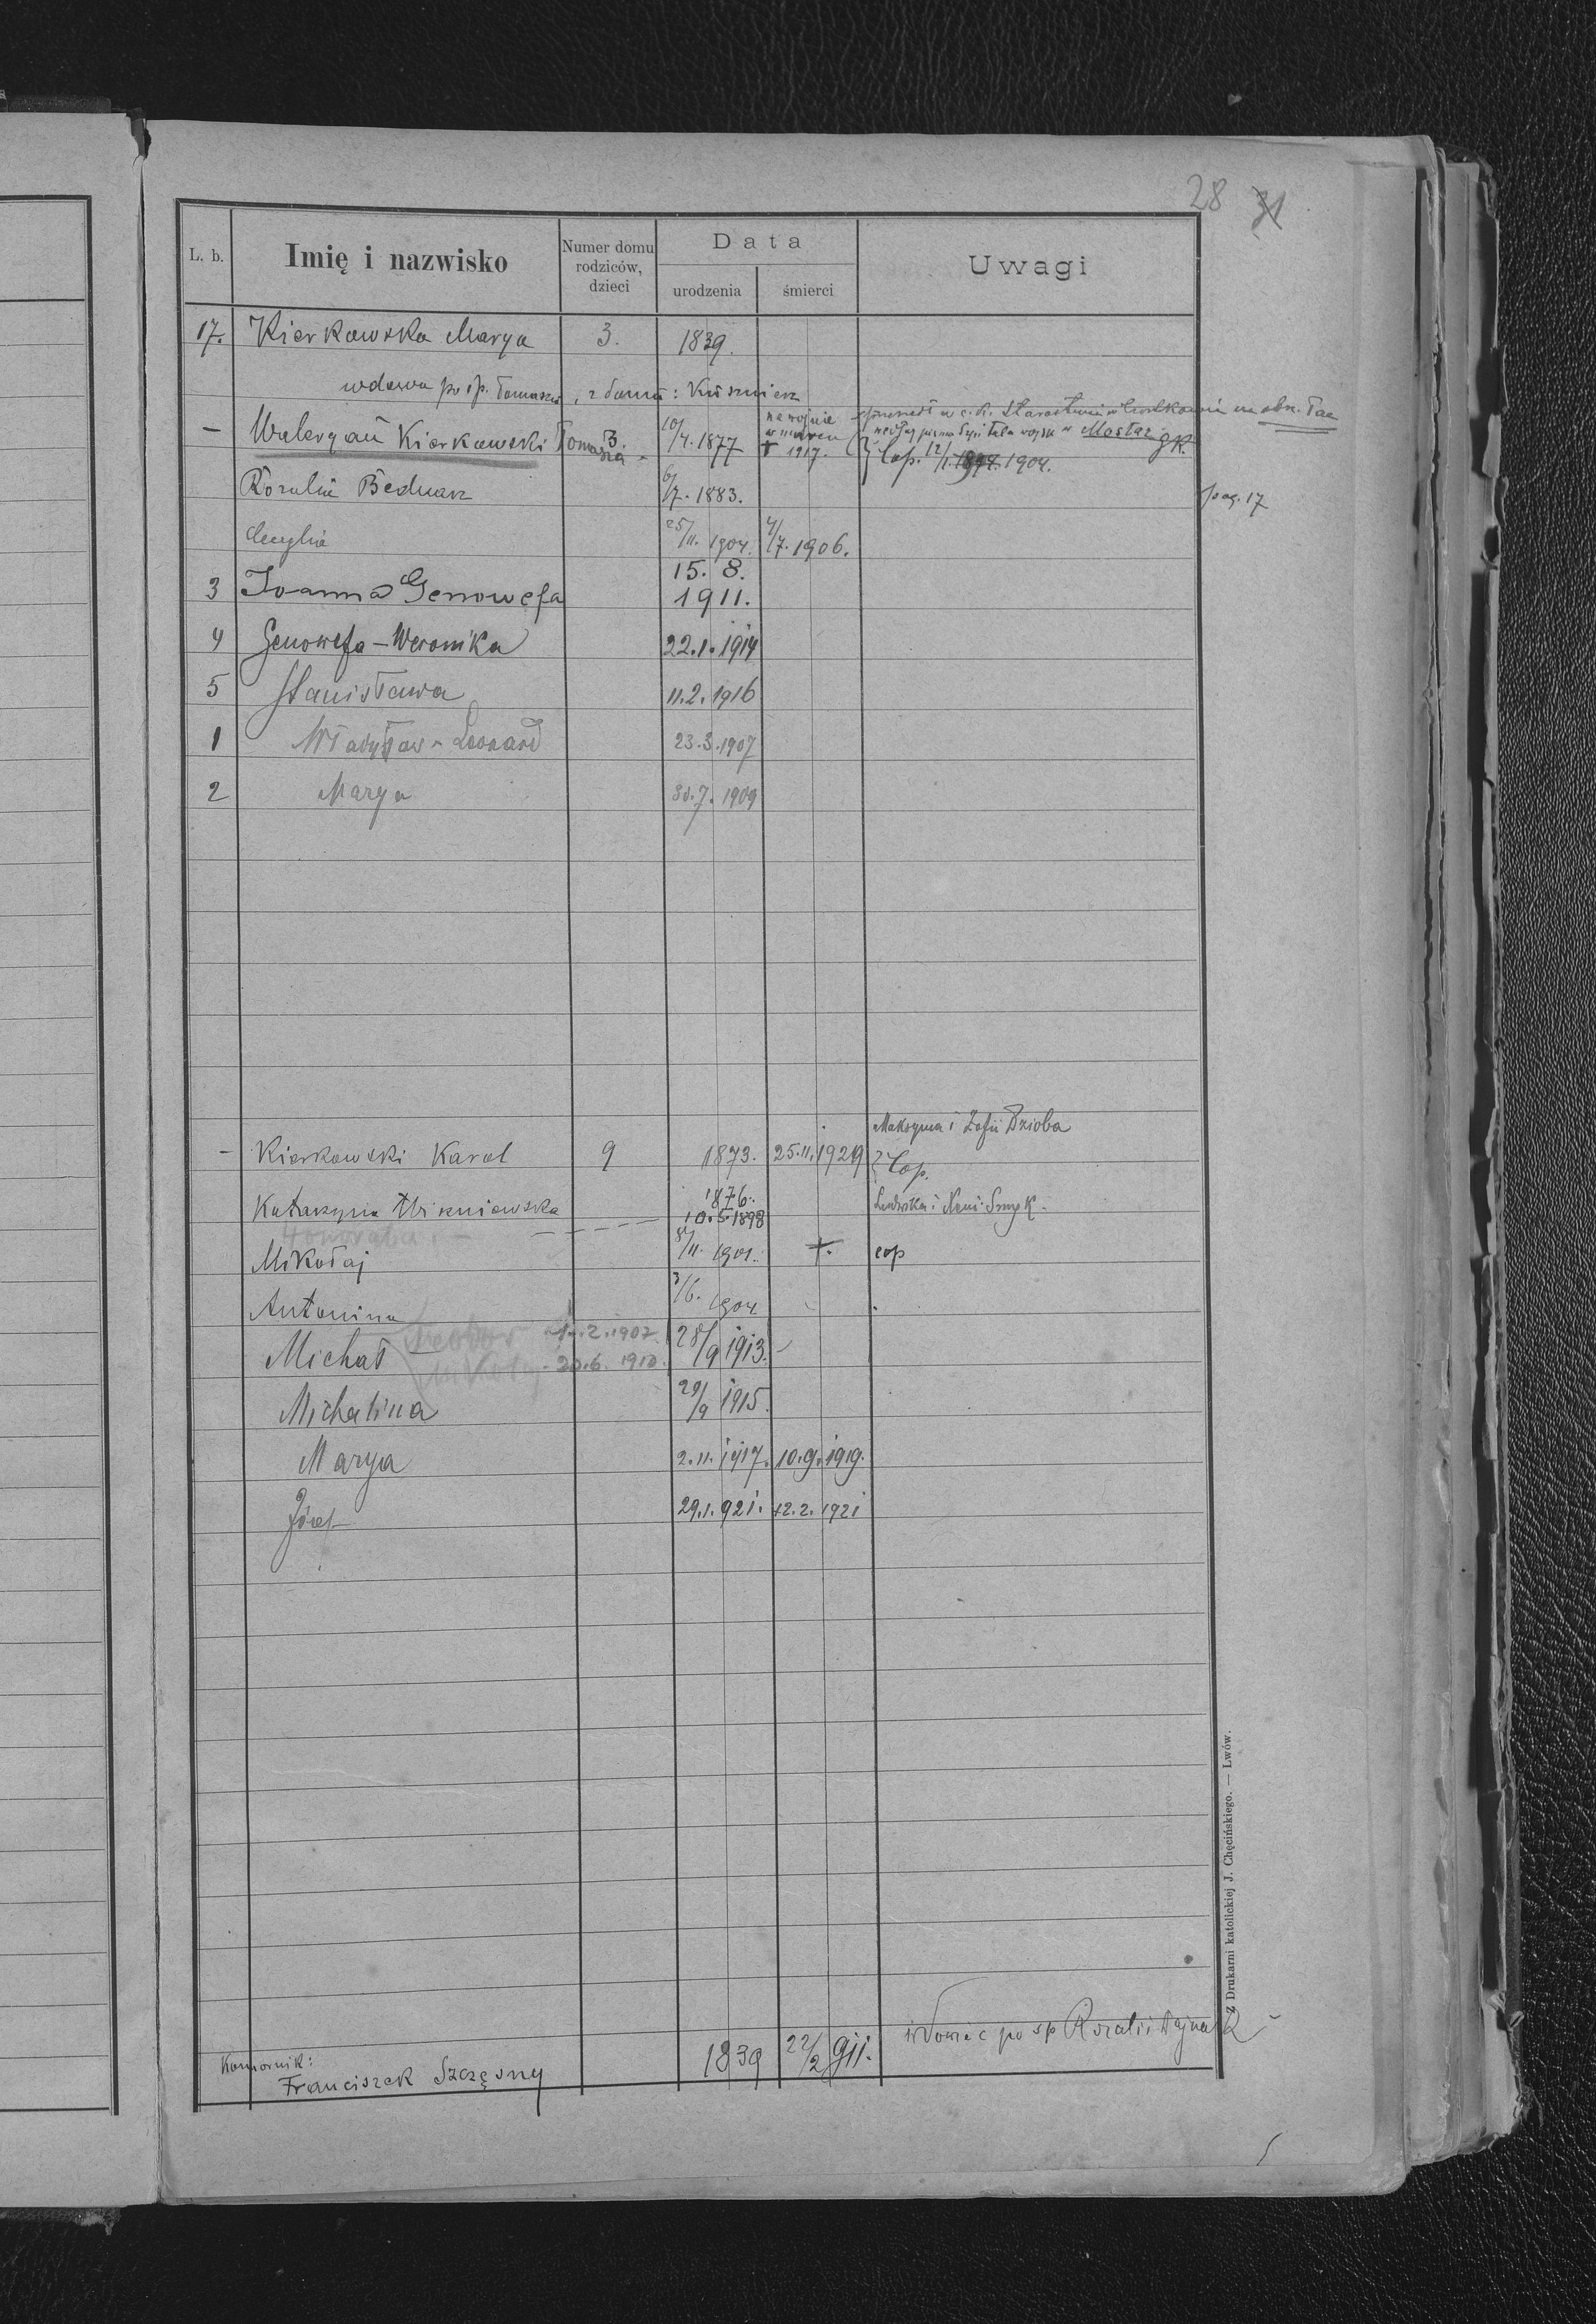 28 31
L. b. Imię i nazwisko Numer domu rodziców, dzieci Data urodzenia śmierci Uwagi
17. Kierkowska Marya 3. 1839.
wdowa po śp. Tomaszu, z domu: Kuśnierz
na wojnie w marcu † 1917.
w c. k. Starostwie
Mostar gk.
– Waleryan Kierkowski Tomasza 3. 10/4. 1877 Cop. 12/1. 1904.
Rozalia Bednarz 6/7. 1883. pag. 17
Cecylia 25/11. 1904. 4/7. 1906.
3 Joanna Genowefa 15. 8. 1911.
4 Genowefa – Weronika 22. 1. 1914
5 Stanisława 11. 2. 1916
1 Władysław – Leonard 23. 3. 1907
2 Marya 30. 7. 1909
Maksyma i Zofii Dzioba
– Kierkowski Karol 9 1873. 25. 11. 1929 Cop.
Katarzyna Wiszniowska 1876. Ludwika i
Honorata 10. 5. 1898
Mikołaj 8/11. 1901. †. cop
Antonina 3/6. 1904
Teodor 2. 1907.
Michał 28/9 1913.
Mikołaj 20. 6. 1910.
Michalina 29/9 1915.
Marya 2. 11. 1917. 10. 9. 1919.
Józef 29. 1. 921. 12. 2. 1921
Komornik:
Franciszek Szczęsny 1839 22/2 911. wdowiec po śp Rozalii
Z Drukarni katolickiej J. Chęcińskiego. — Lwów.